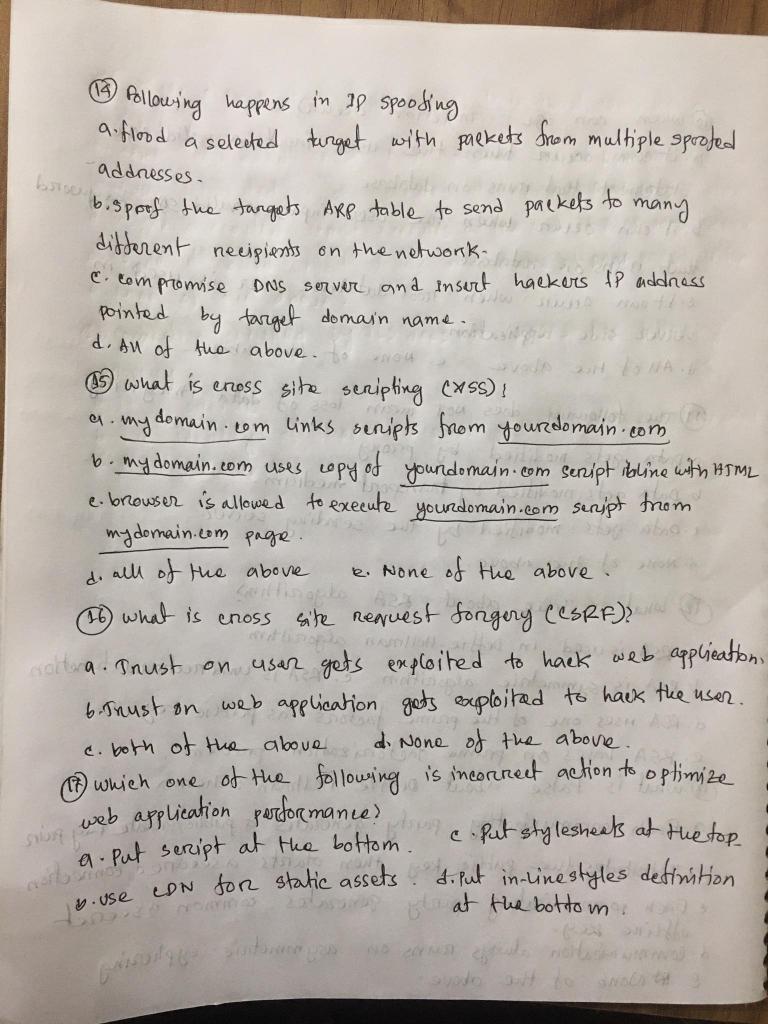 14 Following happens in IP spoofing
a. flood a selected target with packets from multiple spoofed
addresses.
b. spoof the targets ARP table to send packets to many
different recipients on the network.
c. compromise DNS server and insert hackers IP address
pointed by target domain name.
d. All of the above.
15 what is cross site scripting (XSS)?
a. mydomain.com links scripts from yourdomain.com
b. mydomain.com uses copy of yourdomain.com script inline with HTML
c. browser is allowed to execute yourdomain.com script from
mydomain.com page.
d. all of the above e. None of the above.
16 what is cross site request forgery (CSRF)?
a. Trust on user gets exploited to hack web application.
b. Trust on web application gets exploited to hack the user.
c. both of the above d. None of the above.
17 which one of the following is incorrect action to optimize
web application performance?
a. Put script at the bottom. c. Put stylesheets at the top
b. use CDN for static assets. d. Put in-line styles definition
at the bottom.